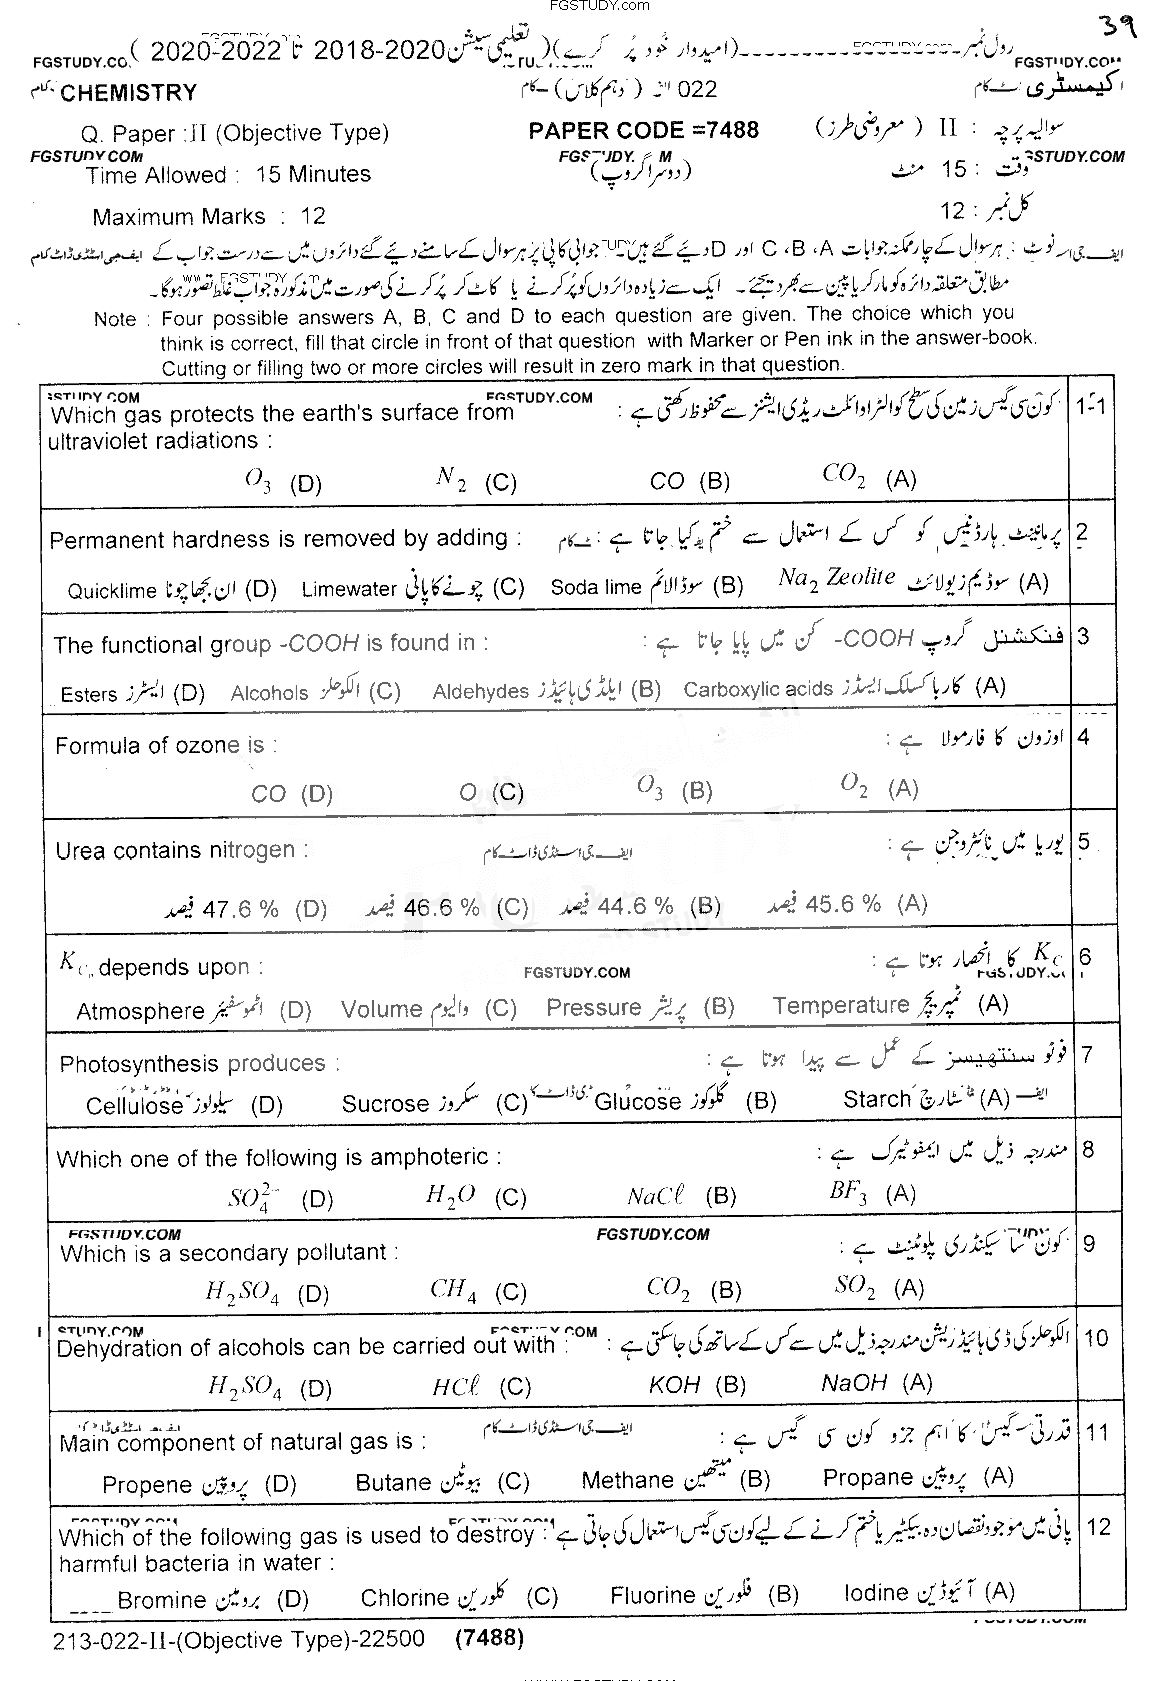 FGSTUDY.com
39
رول نمبر (امیدوار خود پُر کرے) (تعلیمی سیشن 2018-2020 تا 2020-2022 )
FGSTUDY.COM
CHEMISTRY 022 (دہم کلاس) کیمسٹری
Q. Paper : II (Objective Type) PAPER CODE =7488 سوالیہ پرچہ : II ( معروضی طرز)
FGSTUDY.COM
Time Allowed : 15 Minutes (دوسرا گروپ) وقت : 15 منٹ
Maximum Marks : 12 کل نمبر : 12
نوٹ : ہر سوال کے چار ممکنہ جوابات A، B، C اور D دیے گئے ہیں۔ جوابی کاپی پر ہر سوال کے سامنے دیے گئے دائروں میں سے درست جواب کے
مطابق متعلقہ دائرہ کو مارکر یا پین سے بھر دیجئے۔ ایک سے زیادہ دائروں کو پُر کرنے یا کاٹ کر پُر کرنے کی صورت میں مذکورہ جواب غلط تصور ہوگا۔
Note : Four possible answers A, B, C and D to each question are given. The choice which you
think is correct, fill that circle in front of that question with Marker or Pen ink in the answer-book.
Cutting or filling two or more circles will result in zero mark in that question.
FGSTUDY.COM
Which gas protects the earth's surface from : کون سی گیس زمین کی سطح کو الٹرا وائلٹ ریڈی ایشنز سے محفوظ رکھتی ہے 1-1
ultraviolet radiations :
O₃ (D) N₂ (C) CO (B) CO₂ (A)
Permanent hardness is removed by adding : پرمانینٹ ہارڈنیس کو کس کے استعمال سے ختم کیا جاتا ہے : 2
Quicklime ان بجھا چونا (D) Limewater چونے کا پانی (C) Soda lime سوڈا لائم (B) Na₂ Zeolite سوڈیم زیولائٹ (A)
The functional group -COOH is found in : فنکشنل گروپ COOH- کن میں پایا جاتا ہے : 3
Esters ایسٹرز (D) Alcohols الکوحلز (C) Aldehydes ایلڈی ہائیڈز (B) Carboxylic acids کاربا کسلک ایسڈز (A)
Formula of ozone is : اوزون کا فارمولا ہے : 4
CO (D) O (C) O₃ (B) O₂ (A)
Urea contains nitrogen : یوریا میں نائٹروجن ہے : 5
47.6 % فیصد (D) 46.6 % فیصد (C) 44.6 % فیصد (B) 45.6 % فیصد (A)
Kc depends upon : FGSTUDY.COM Kc کا انحصار ہوتا ہے : 6
Atmosphere اٹموسفیئر (D) Volume والیوم (C) Pressure پریشر (B) Temperature ٹمپریچر (A)
Photosynthesis produces : فوٹو سنتھیسز کے عمل سے پیدا ہوتا ہے : 7
Cellulose سیلولوز (D) Sucrose سکروز (C) Glucose گلوکوز (B) Starch سٹارچ (A)
Which one of the following is amphoteric : مندرجہ ذیل میں ایمفوٹیرک ہے : 8
SO₄²⁻ (D) H₂O (C) NaCℓ (B) BF₃ (A)
FGSTUDY.COM FGSTUDY.COM
Which is a secondary pollutant : کون سا سیکنڈری پلوٹینٹ ہے : 9
H₂SO₄ (D) CH₄ (C) CO₂ (B) SO₂ (A)
Dehydration of alcohols can be carried out with : الکوحلز کی ڈی ہائیڈریشن مندرجہ ذیل میں سے کس کے ساتھ کی جا سکتی ہے : 10
H₂SO₄ (D) HCℓ (C) KOH (B) NaOH (A)
Main component of natural gas is : قدرتی گیس کا اہم جزو کون سی گیس ہے : 11
Propene پروپین (D) Butane بیوٹین (C) Methane میتھین (B) Propane پروپین (A)
Which of the following gas is used to destroy : پانی میں موجود نقصان دہ بیکٹیریا ختم کرنے کے لیے کون سی گیس استعمال کی جاتی ہے 12
harmful bacteria in water :
Bromine برومین (D) Chlorine کلورین (C) Fluorine فلورین (B) Iodine آئیوڈین (A)
213-022-II-(Objective Type)-22500 (7488)